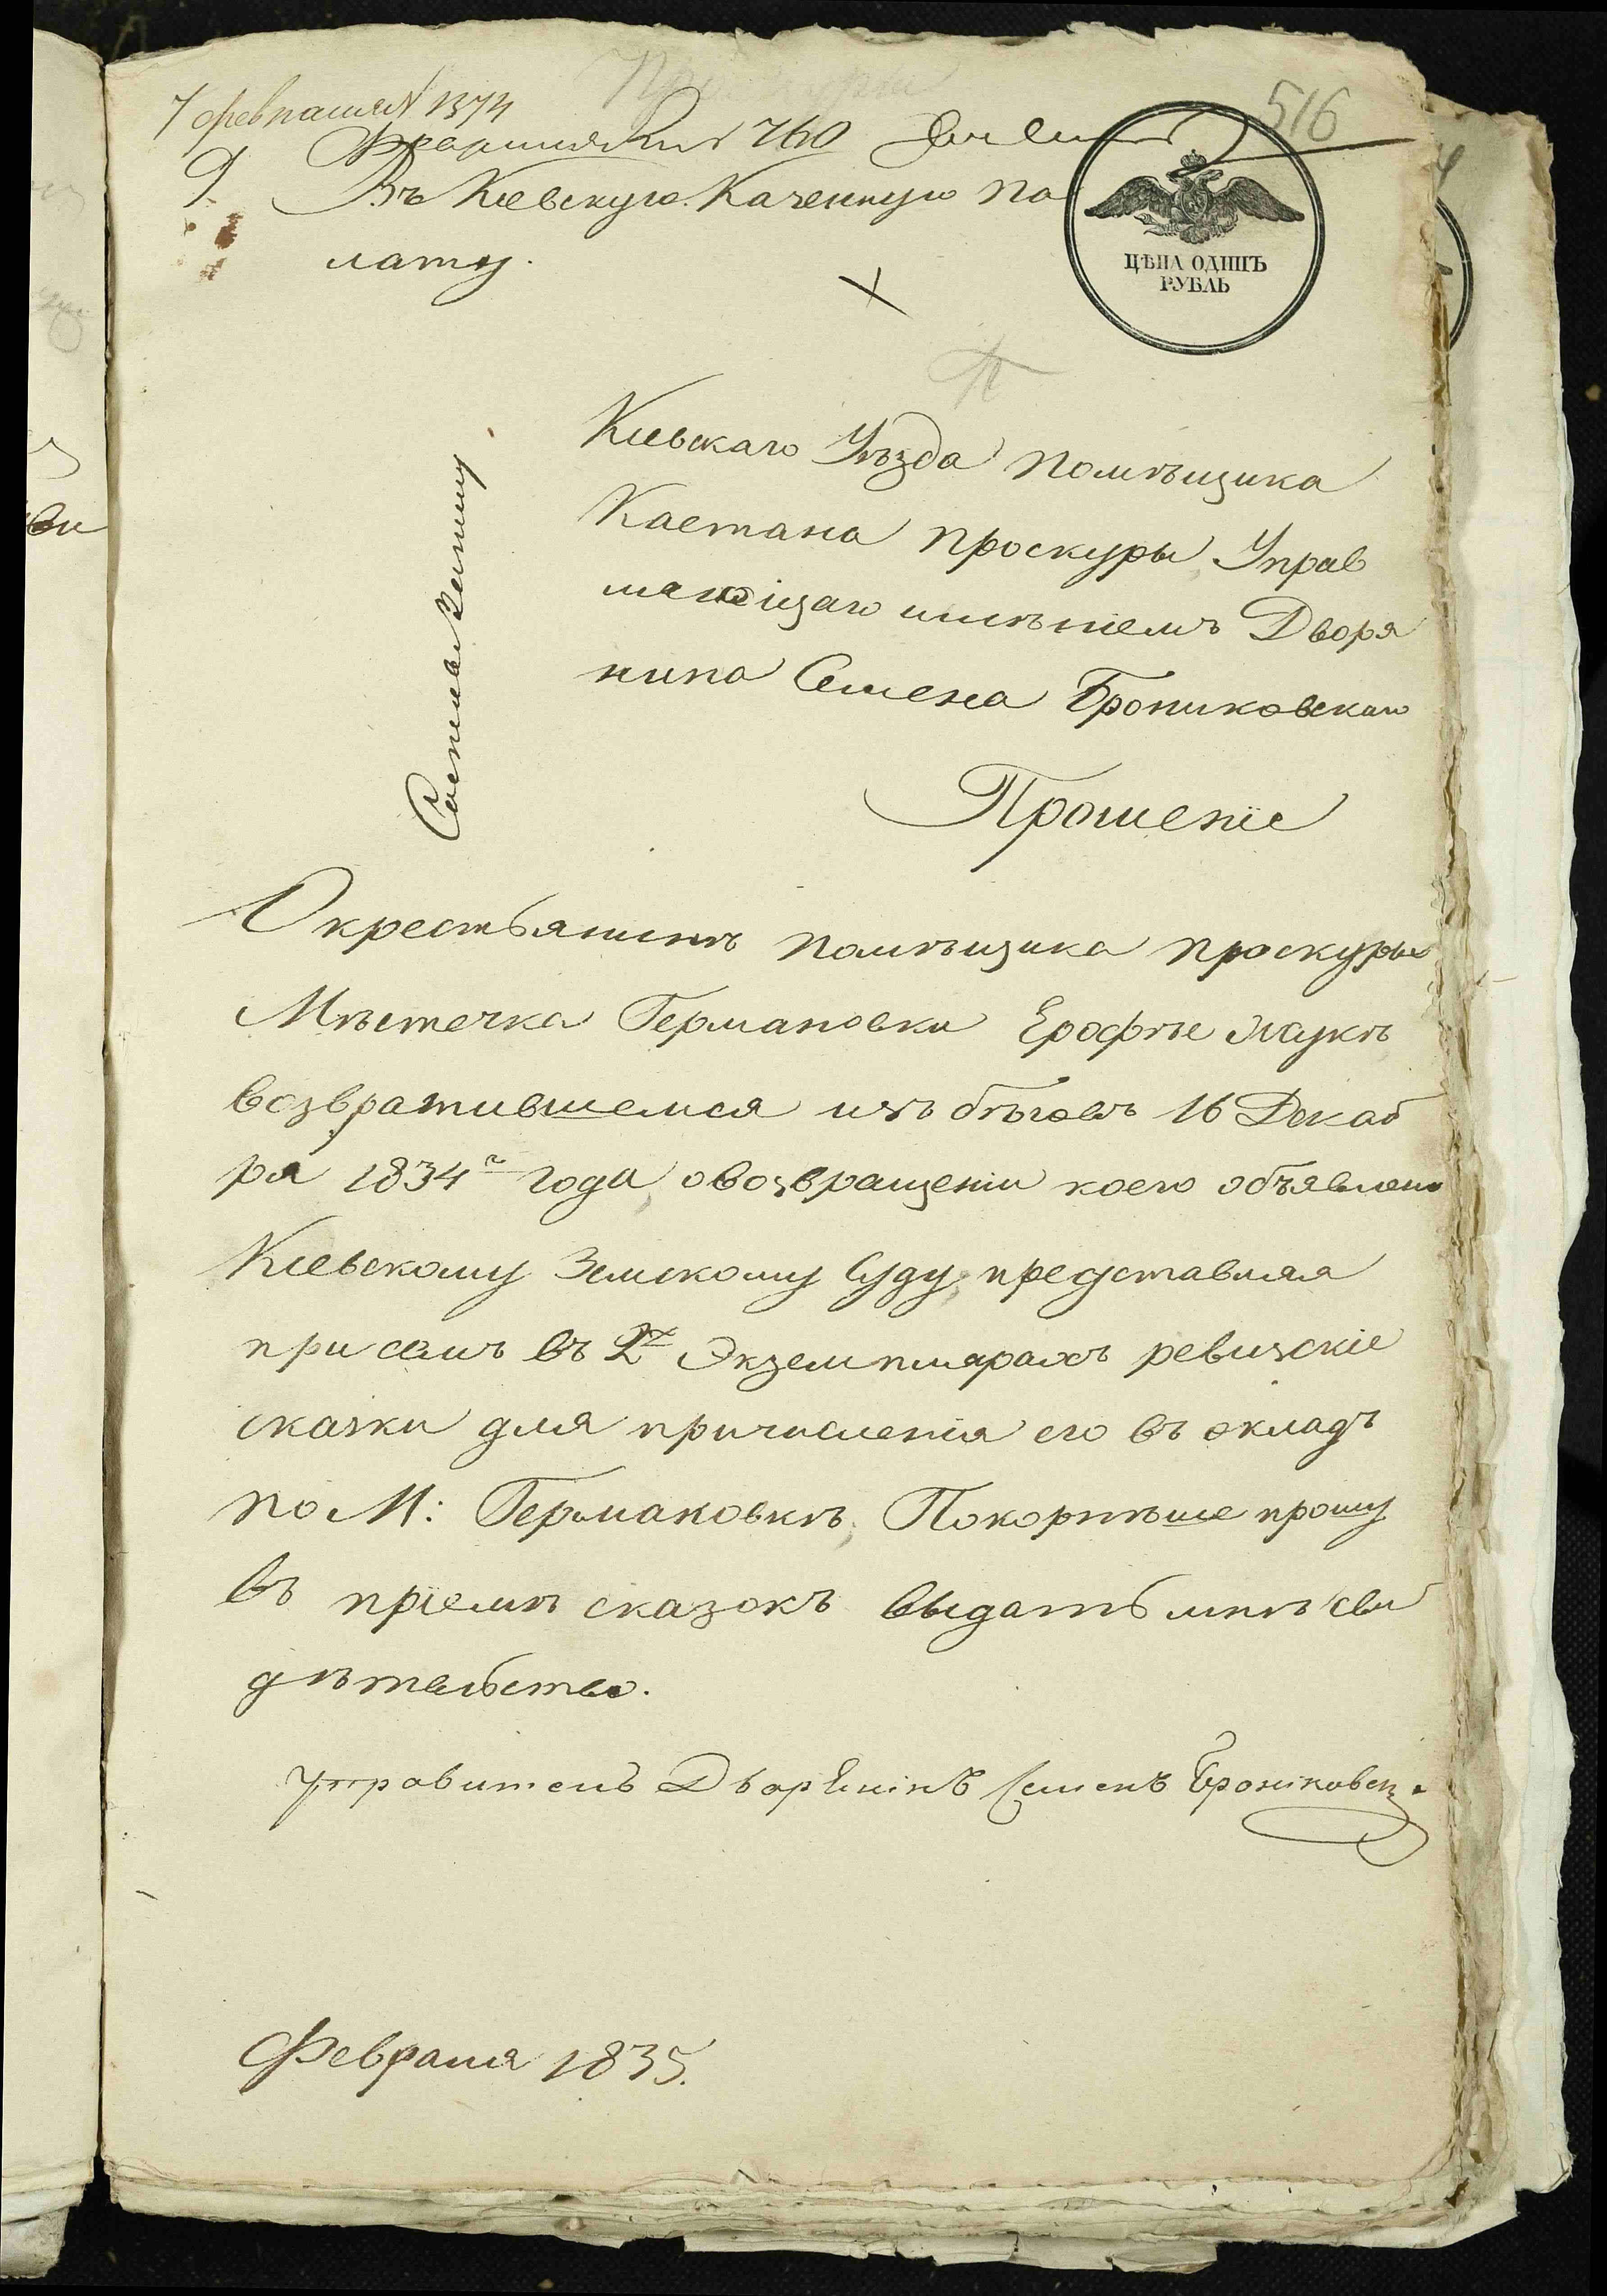 516
7 февраля № 1374
№ 760
Въ Кіевскую Казенную Па
лату.
ЦѢНА ОДИНЪ
РУБЛЬ
Кіевскаго Уѣзда помѣщика
Каетана Проскуры, Управ
ляющаго имѣніемъ Дворя
нина Семена Брониковскаго
Прошеніе
О крестьянинѣ помѣщика Проскуры
Мѣстечка Германовки Ерофѣе
возвратившемся изъ бѣговъ 16 Декаб
ря 1834го года, о возвращеніи коего объявлено
Кіевскому Земскому Суду, представляя
при семъ въ 2х Экземплярахъ ревизскіе
сказки для причисленія его въ окладъ
по М: Германовкѣ, Покорнѣше прошу
въ пріемѣ сказокъ выдать мнѣ сви
дѣтельство.
Управитель Дворенінъ Семенъ Броніковск
Февраля 1835.